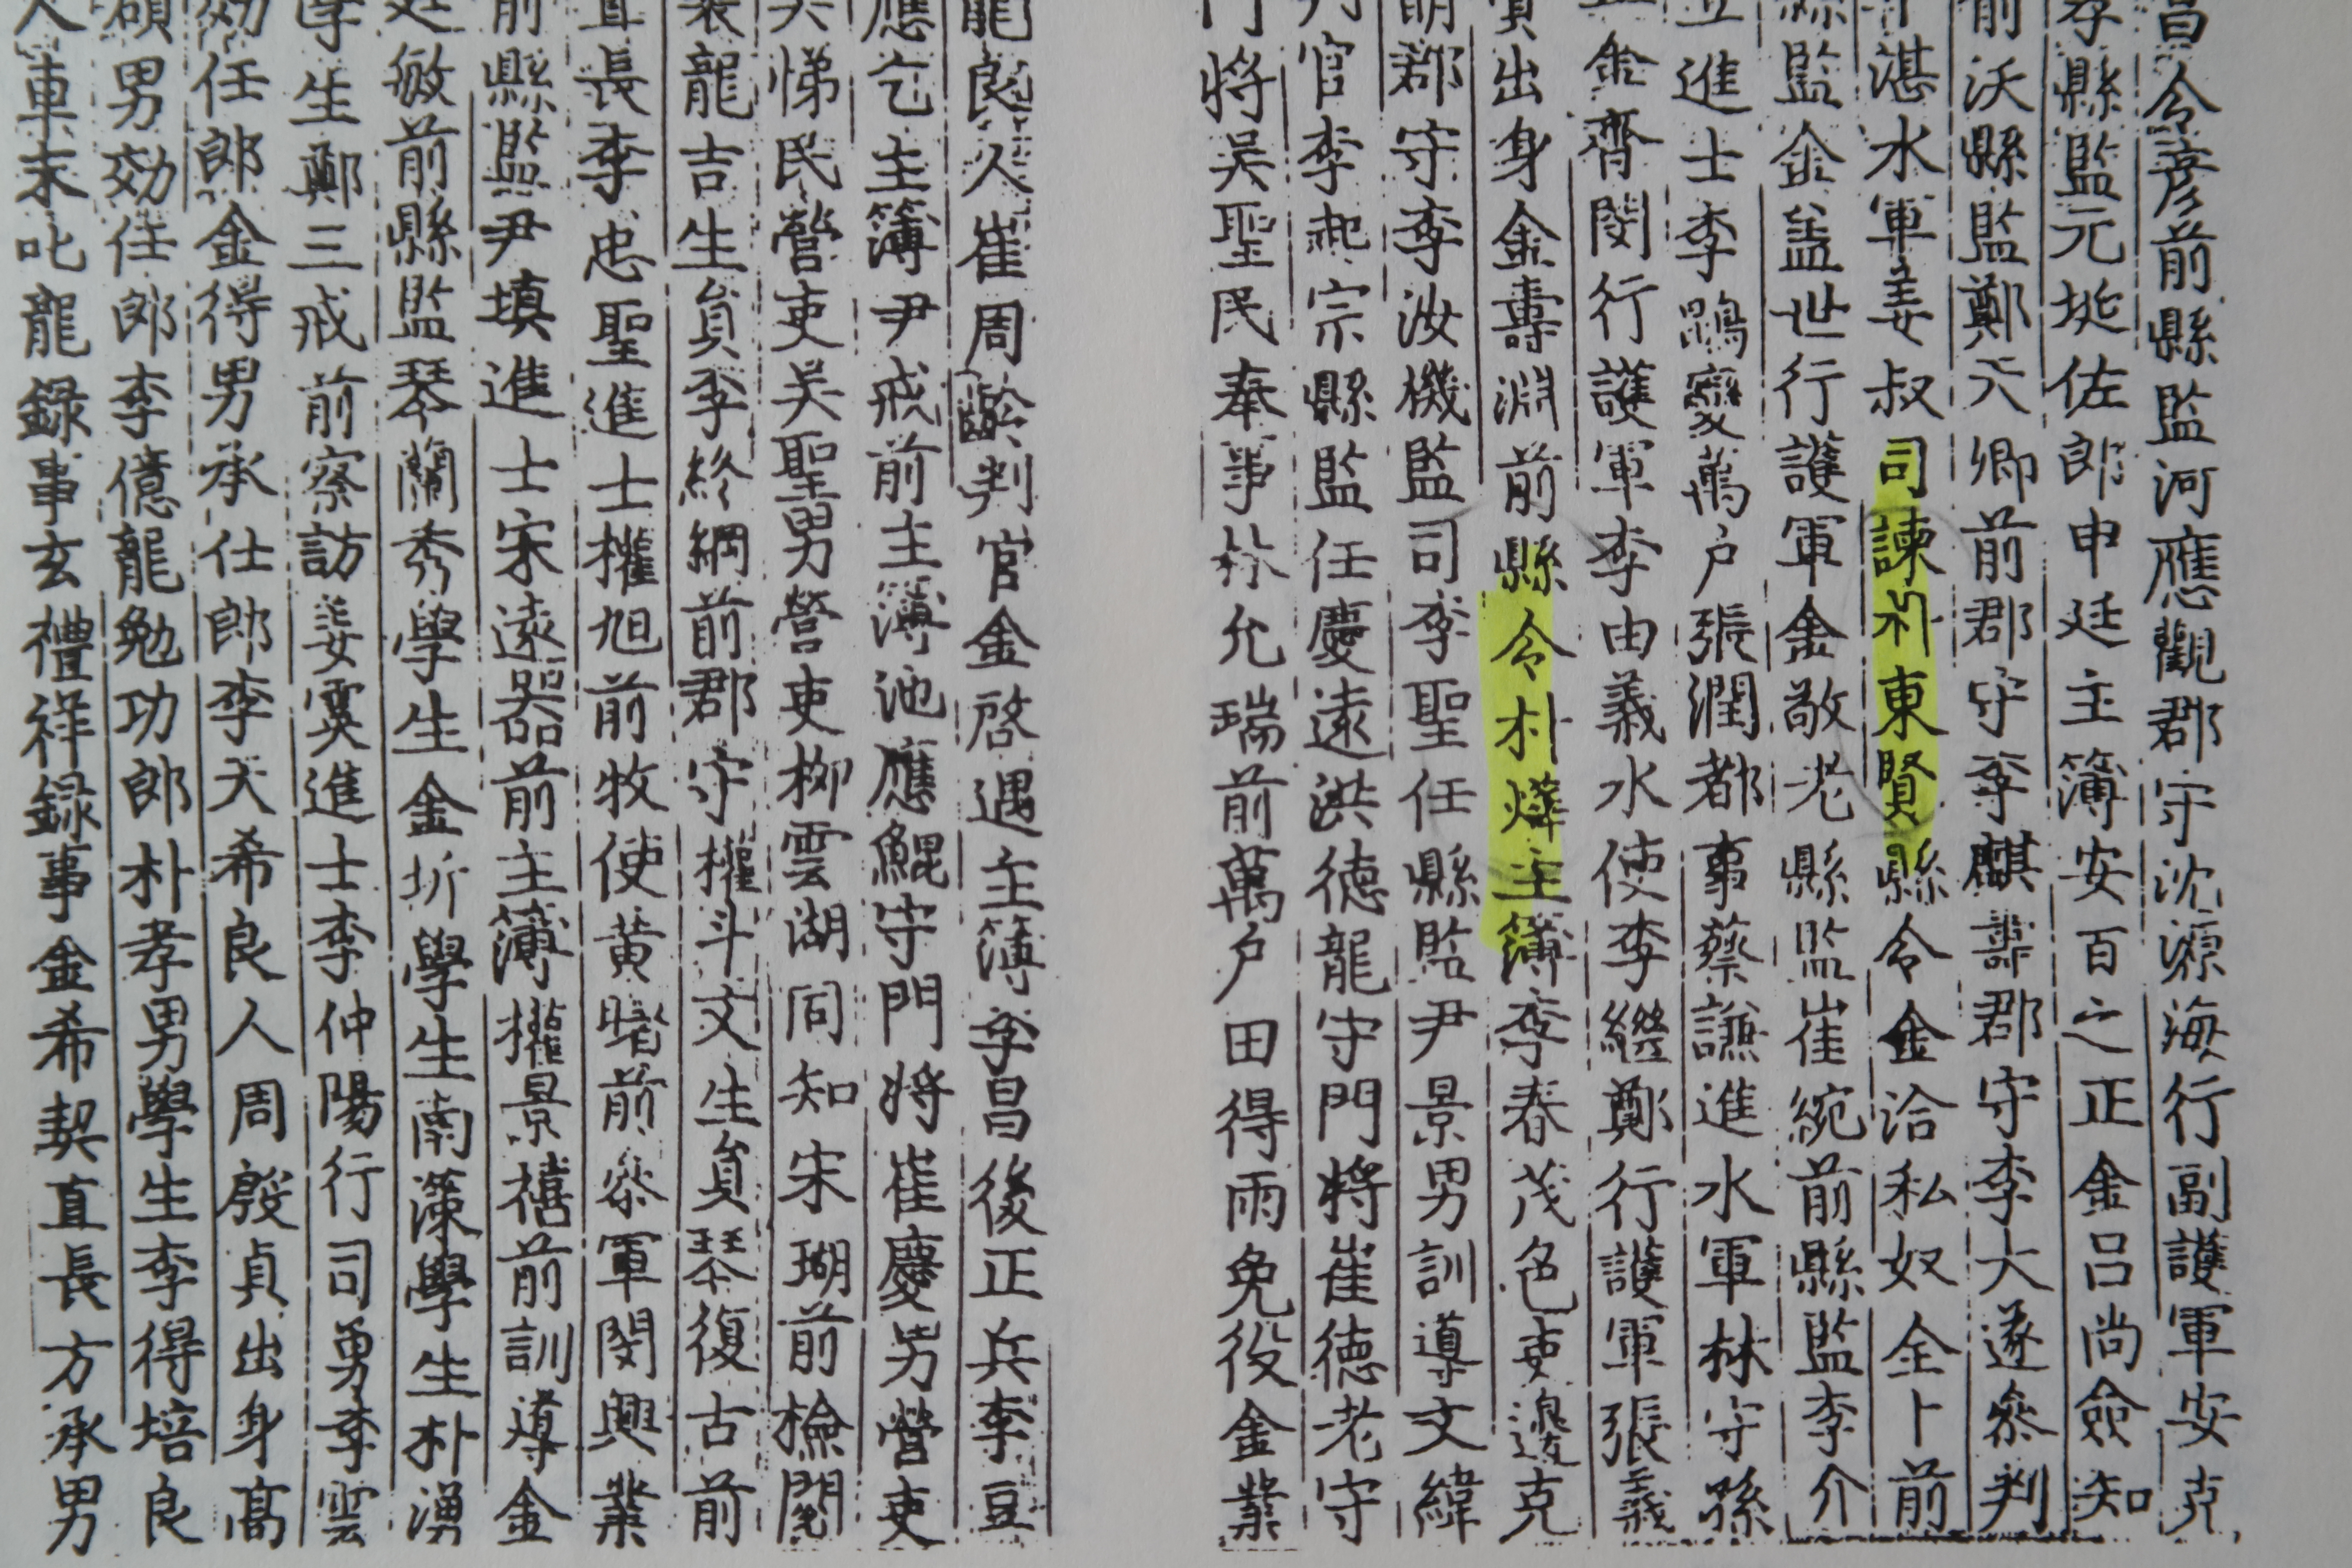 昌令彦前縣監河應觀郡守沈源海行副護軍安克
孝縣監元埏佐郎申廷主簿安百之正金呂尚僉知
前沃縣監鄭天卿前郡守李麒壽郡守李大遂叅判
湛水軍姜叔司諫朴東賢縣令金洽私奴全卜前
縣監金盖世行護軍金敬老縣監崔綂前縣監李介
立進士李鷄燮萬户張潤都事蔡謙進水軍林守孫
金齊閔行護軍李由義水使李繼鄭行護軍張義
貫出身金壽淵前縣令朴燁主簿李春茂色吏邊克
明郡守李汝機監司李聖任縣監尹景男訓導文緯
官李起宗縣監任慶遠洪德龍守門將崔德老守
門將吳聖民奉事朴允瑞前萬户田得雨免役金業
龍良人崔周判官金啓遇主簿李昌後正兵李豆
應乞主簿尹戒前主簿池應鯤守門將崔慶男營吏
吳悌民營吏吴聖男營吏柳雲湖同知宋瑚前檢閱
裴龍吉生員李終綱前郡守權斗文生員琴復古前
直長李忠聖進士權旭前牧使黄曙前叅軍閔興業
前縣監尹塡進士宋遠器前主簿權景禧前訓導金
廷敏前縣監琴蘭秀學生金圻學生南溁學生朴湧
學生鄭三戒前察訪姜霙進士李仲陽行司勇李雲
効任郎金得男承仕郎李天希良人周殷貞出身髙
碩男効任郎李億龍勉功郎朴孝男學生李得培良
人車末叱龍録事玄禮祥録事金希契直長方承男